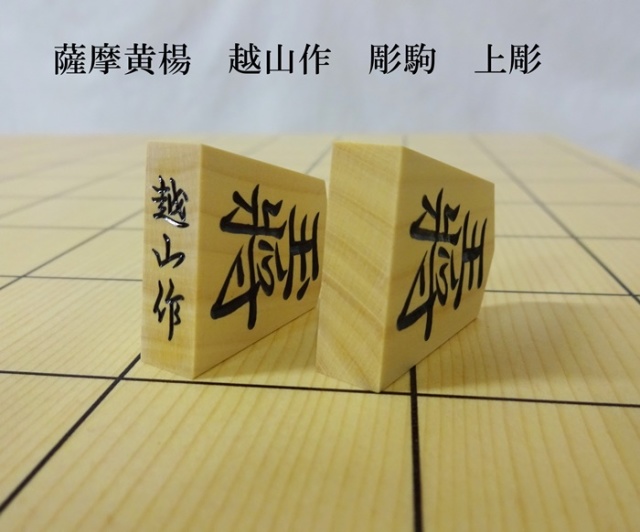 薩摩黄楊　越山作　彫駒　上彫
越山作
玉将
王将